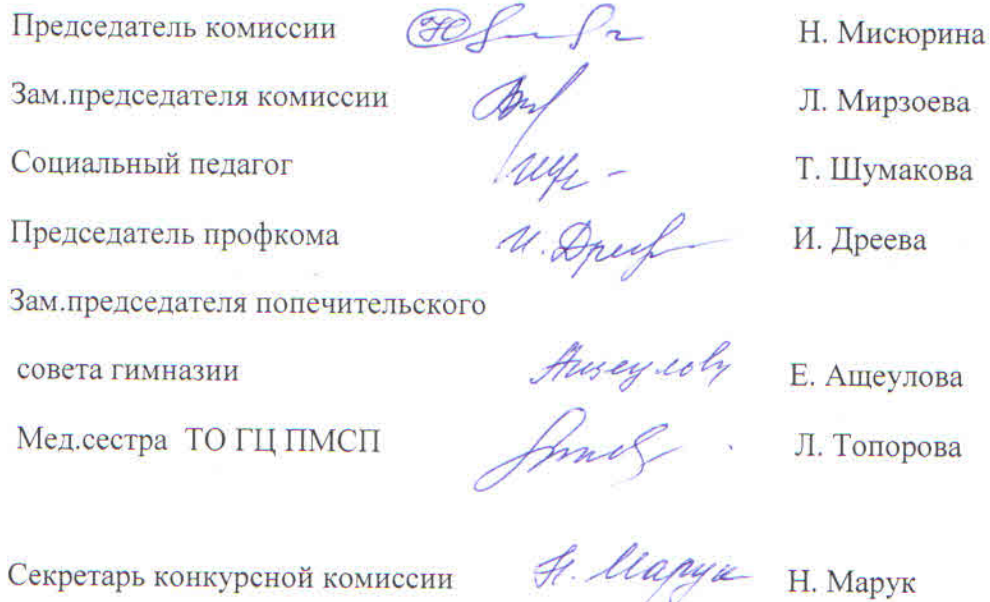 Председатель комиссии Н. Мисюрина
Зам.председателя комиссии Л. Мирзоева
Социальный педагог Т. Шумакова
Председатель профкома И. Дреева
Зам.председателя попечительского
совета гимназии Е. Ащеулова
Мед.сестра ТО ГЦ ПМСП Л. Топорова
Секретарь конкурсной комиссии Н. Марук Н. Марук